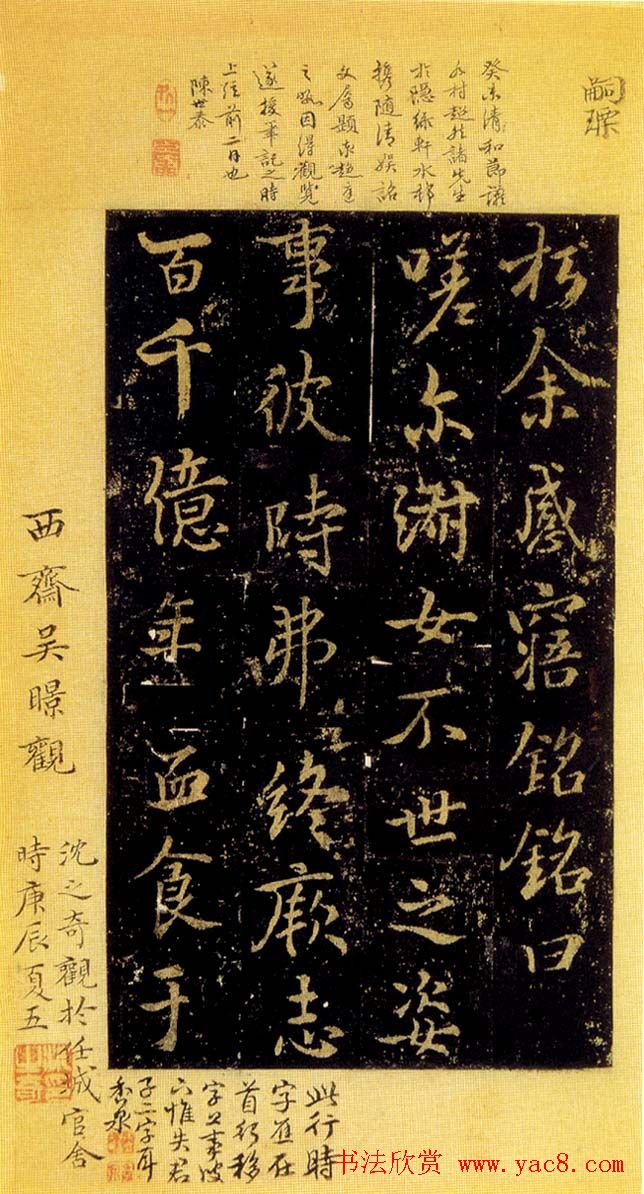 嗣瑮
癸未清和節讌
水村趙諸先生
於隱綠軒水邨
携隨清娛誌
文屬題
之 因得觀覧
遂援筆記之時
上浣前二日也
陳世泰
扵余感寤銘銘曰
嗟尔淑女不世之姿
事彼時弗終厥志
百千億年血食于
西齋吴暻觀
沈之奇觀扵任城官舍
時庚辰夏五
此行時
字應在
首行移
字上事彼
六惟失君
子二字耳
香泉
书法欣赏 www.yac8.com